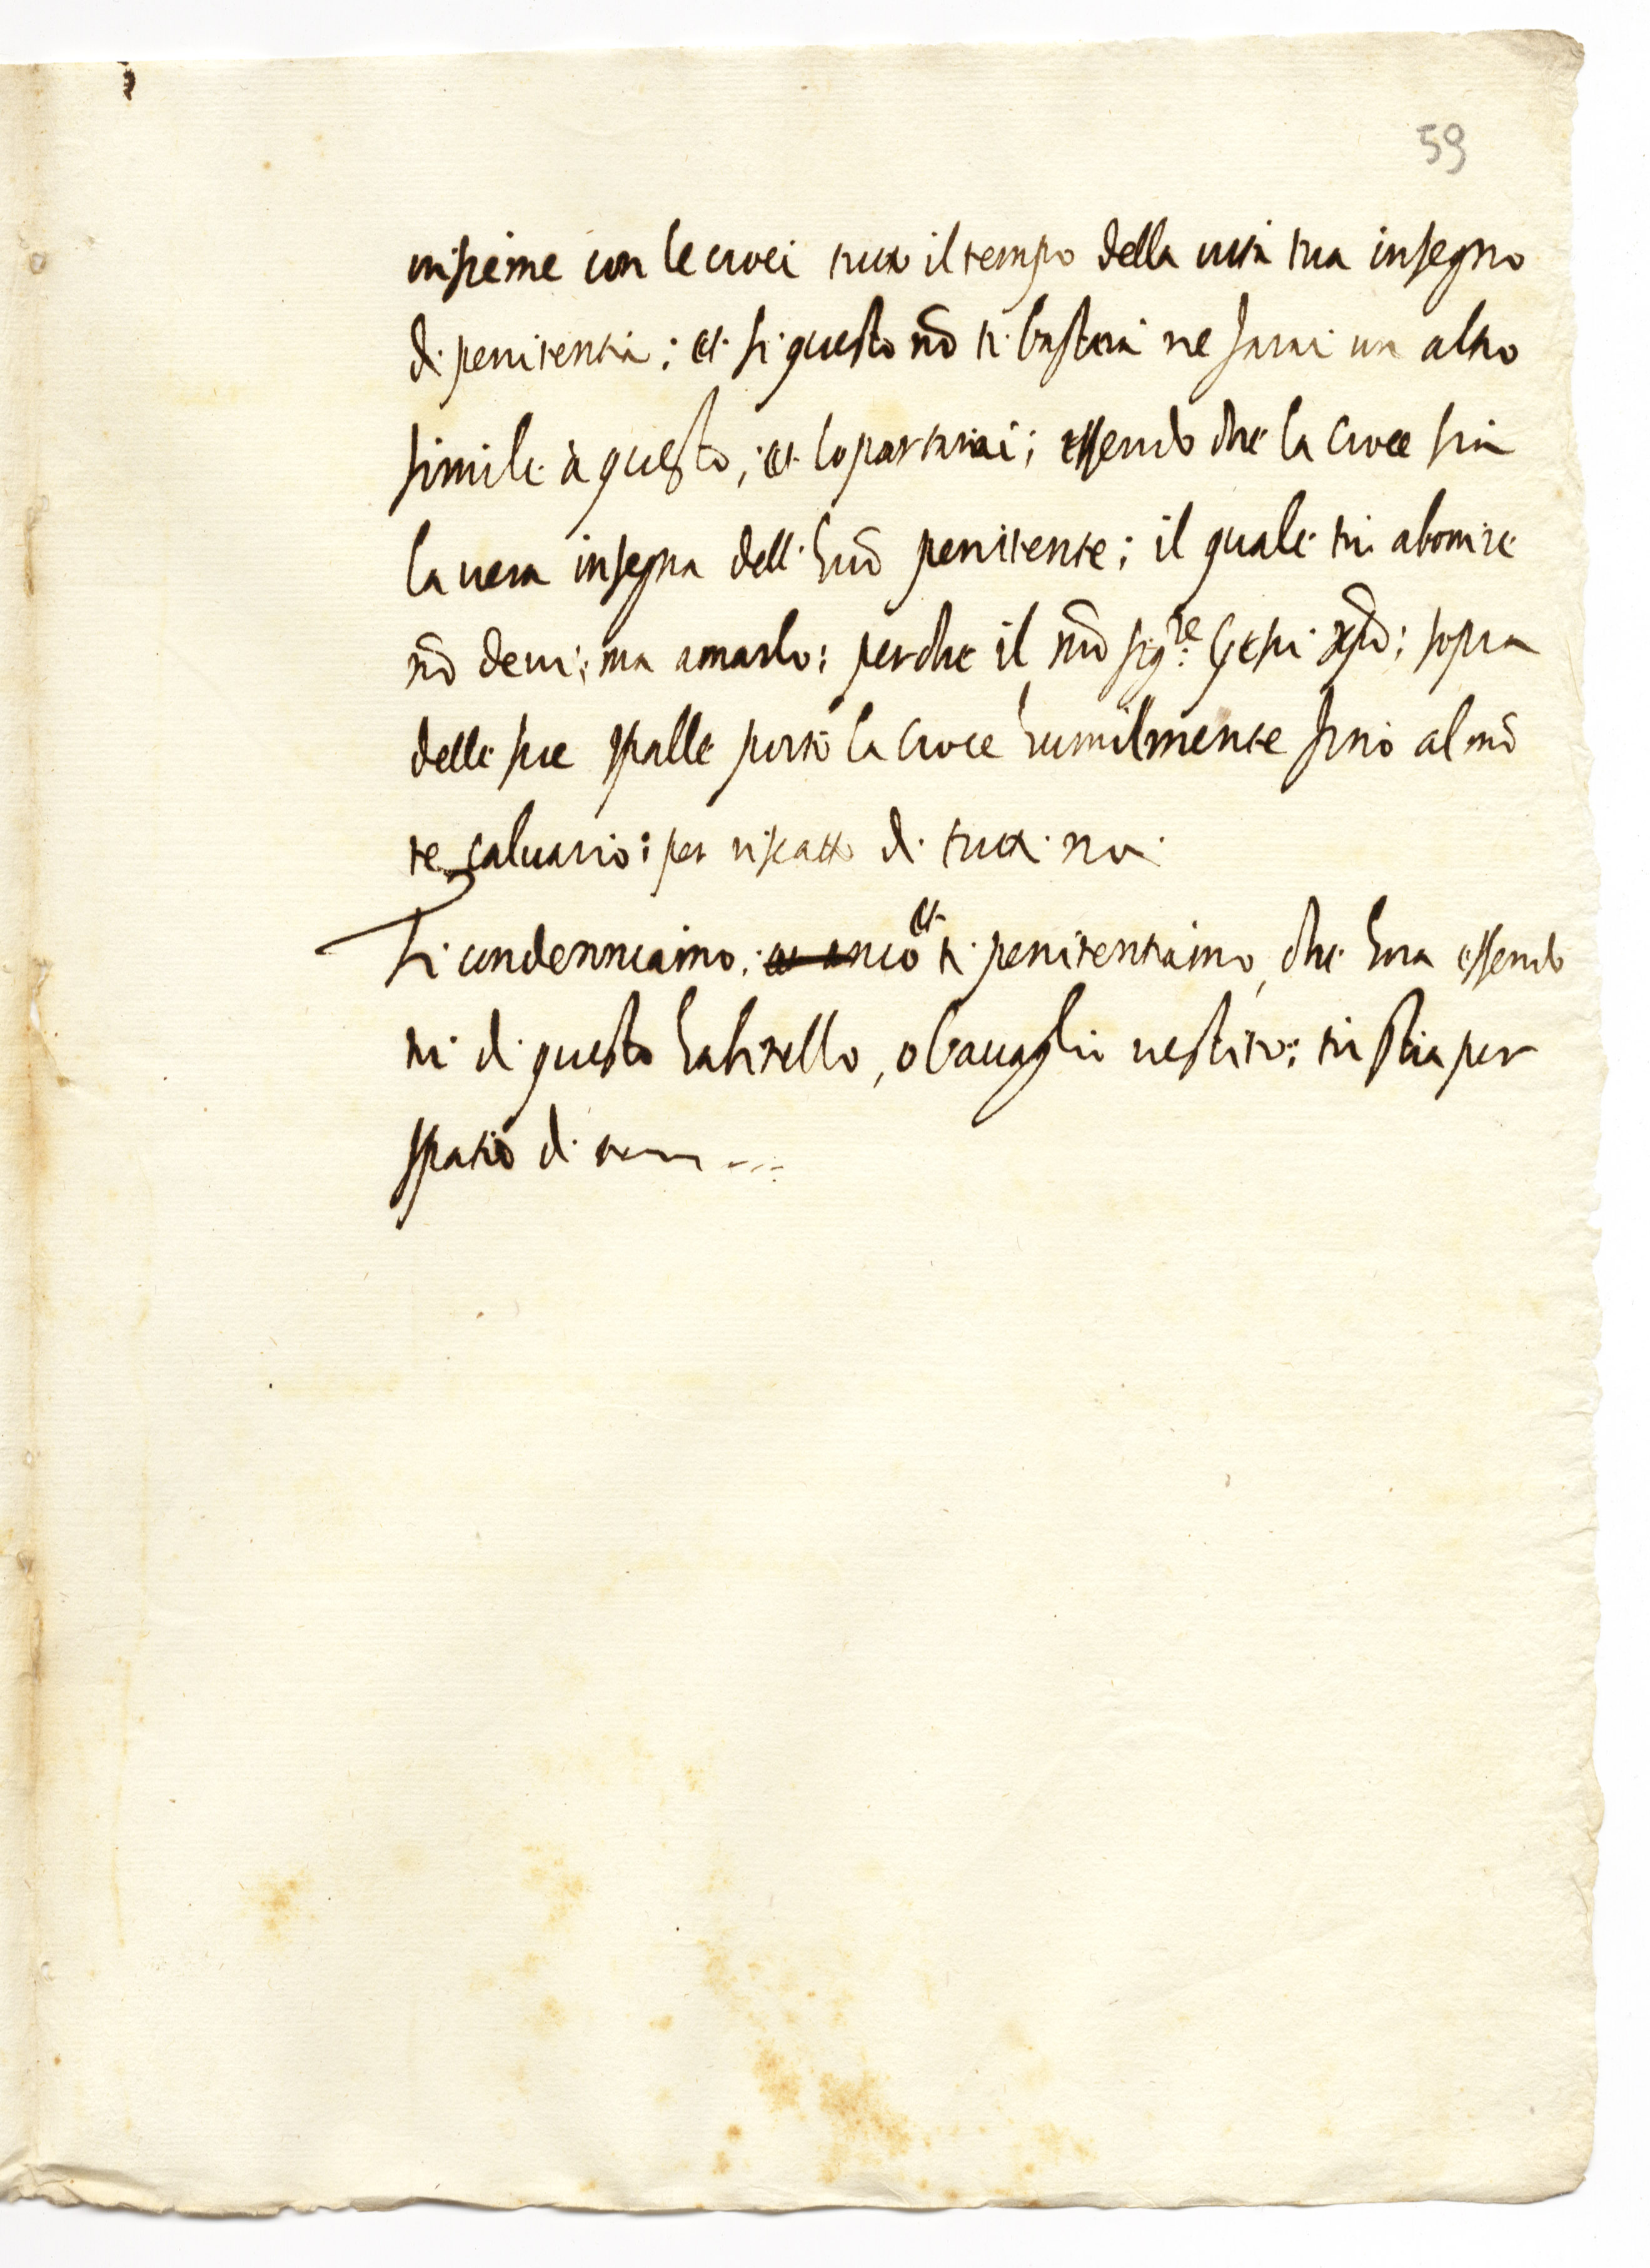 59
insieme con le croci tutto il tempo della vita tua insegno
di penitentia; et si questo nõ ti bastera ne farai un altro
simile à questo; et lo portarai; essendo che la Croce sia
la vera insegna dell'huõ penitente; il quale tu aborrire
nõ devi; ma amarlo: perche il nr̃o sig.re Giesu xp̃o; sopra
delle sue spalle portò la Croce humilmente sino al mõ
te calvario: per riscatto di tutti noi.
Ti condenniamo, et anco et ti penitentiamo, che hora essendo
tu di questo habitello, o bavaglio vestito; tu stia per
spatio di